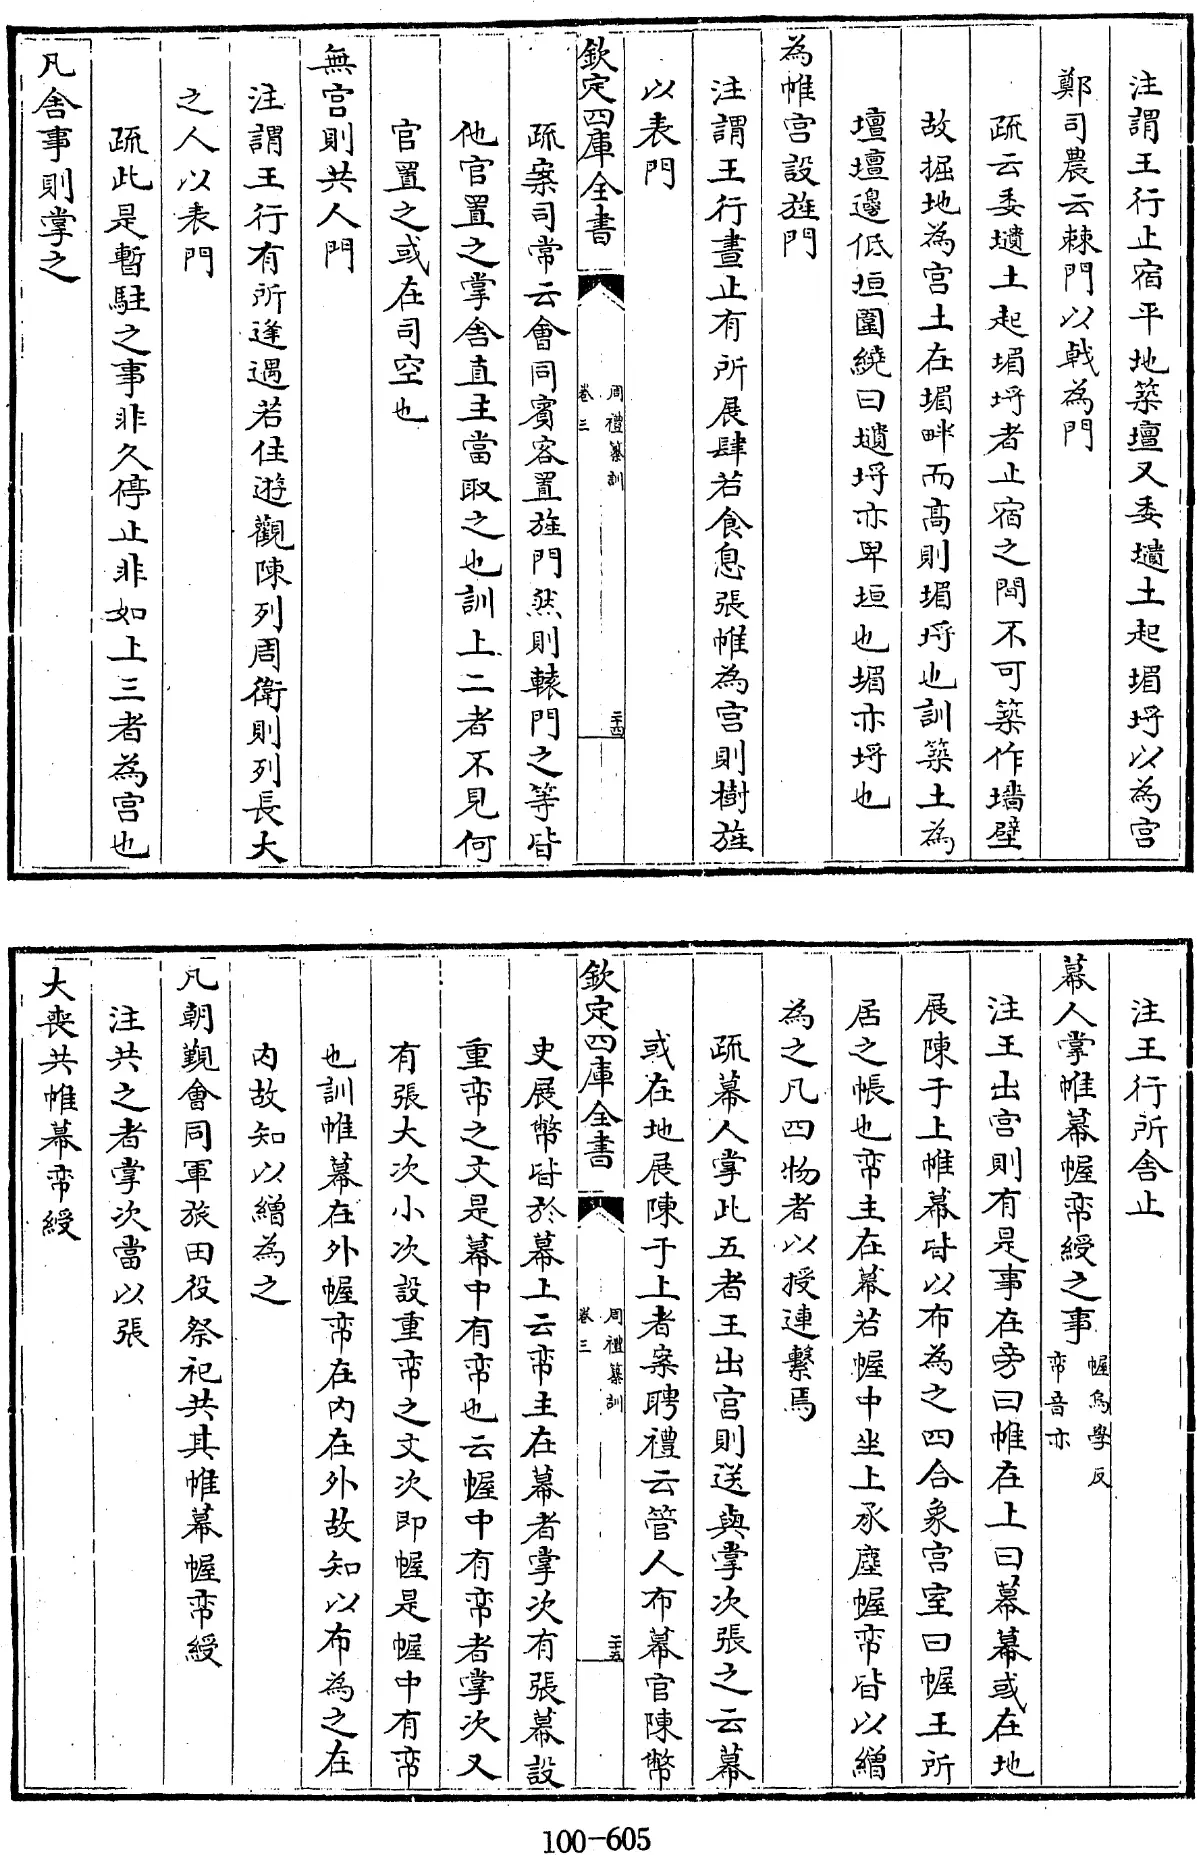 注謂王行止宿平地築壇又委壝土起堳埒以為宫
鄭司農云棘門以戟為門
疏云委壝土起堳埒者止宿之間不可築作墻壁
故掘地為宫土在堳畔而髙則堳埒也訓築土為
壇壇邊低垣圍繞曰壝埒亦卑垣也堳亦埒也
為帷宫設旌門
注謂王行晝止有所展肆若食息張帷為宫則樹旌
以表門
欽定四庫全書
周禮纂訓
卷三
二十四
疏案司常云會同賓客置旌門然則轅門之等皆
他官置之掌舍直主當取之也訓上二者不見何
官置之或在司空也
無宫則共人門
注謂王行有所逢遇若住遊觀陳列周衛則列長大
之人以表門
疏此是暫駐之事非久停止非如上三者為宫也
凡舍事則掌之
注王行所舍止
幕人掌帷幕幄帟綬之事
幄烏學反
帟音亦
注王出宫則有是事在旁曰帷在上曰幕幕或在地
展陳于上帷幕皆以布為之四合象宫室曰幄王所
居之帳也帟主在幕若幄中坐上承塵幄帟皆以繒
為之凡四物者以授連繫焉
疏幕人掌此五者王出宫則送與掌次張之云幕
或在地展陳于上者案聘禮云管人布幕官陳幣
欽定四庫全書
周禮纂訓
卷三
二十五
史展幣皆於幕上云帟主在幕者掌次有張幕設
重帟之文是幕中有帟也云幄中有帟者掌次又
有張大次小次設重帟之文次即幄是幄中有帟
也訓帷幕在外幄帟在内在外故知以布為之在
内故知以繒為之
凡朝覲會同軍旅田役祭祀共其帷幕幄帟綬
注共之者掌次當以張
大喪共帷幕帟綬
100-605